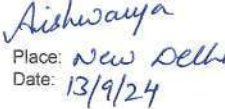 Aishwarya
Place: New Delh
Date: 13/9/24